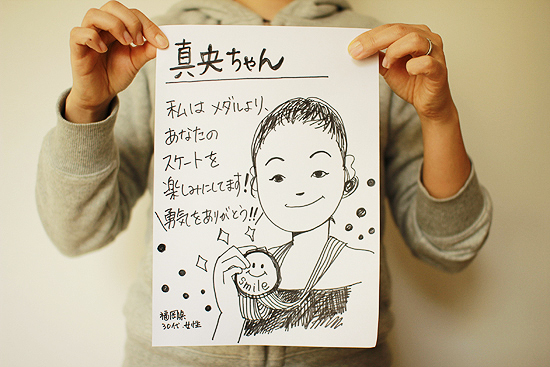 真央ちゃん
私は メダルより、
あなたの
スケートを
楽しみにしてます!
勇気をありがとう!!
smile
福岡県
30代 女性